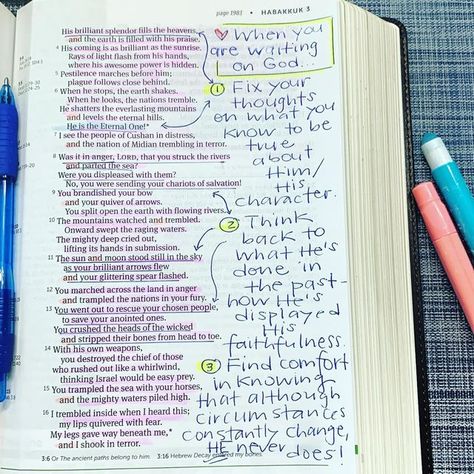 HABAKKUK 3
His brilliant splendor fills the heavens,
and the earth is filled with his praise.
4 His coming is as brilliant as the sunrise.
Rays of light flash from his hands,
where his awesome power is hidden.
5 Pestilence marches before him;
plague follows close behind.
6 When he stops, the earth shakes.
When he looks, the nations tremble.
He shatters the everlasting mountains
and levels the eternal hills.
He is the Eternal One!*
7 I see the people of Cushan in distress,
and the nation of Midian trembling in terror.
8 Was it in anger, LORD, that you struck the rivers
and parted the sea?
Were you displeased with them?
No, you were sending your chariots of salvation!
9 You brandished your bow
and your quiver of arrows.
You split open the earth with flowing rivers.
10 The mountains watched and trembled.
Onward swept the raging waters.
The mighty deep cried out,
lifting its hands in submission.
11 The sun and moon stood still in the sky
as your brilliant arrows flew
and your glittering spear flashed.
12 You marched across the land in anger
and trampled the nations in your fury.
13 You went out to rescue your chosen people,
to save your anointed ones.
You crushed the heads of the wicked
and stripped their bones from head to toe.
14 With his own weapons,
you destroyed the chief of those
who rushed out like a whirlwind,
thinking Israel would be easy prey.
15 You trampled the sea with your horses,
and the mighty waters piled high.
16 I trembled inside when I heard this;
my lips quivered with fear.
My legs gave way beneath me,*
and I shook in terror.
3:6 Or The ancient paths belong to him. 3:16 Hebrew Decay entered my bones.
When you
are waiting
on God...
1 Fix your
thoughts
on what you
know to be
true
about
Him/
His
character.
2 Think
back to
what He's
done in
the past-
how He's
displayed
His
faithfulness.
3 Find comfort
in knowing
that although
circumstances
constantly change,
HE never
does!